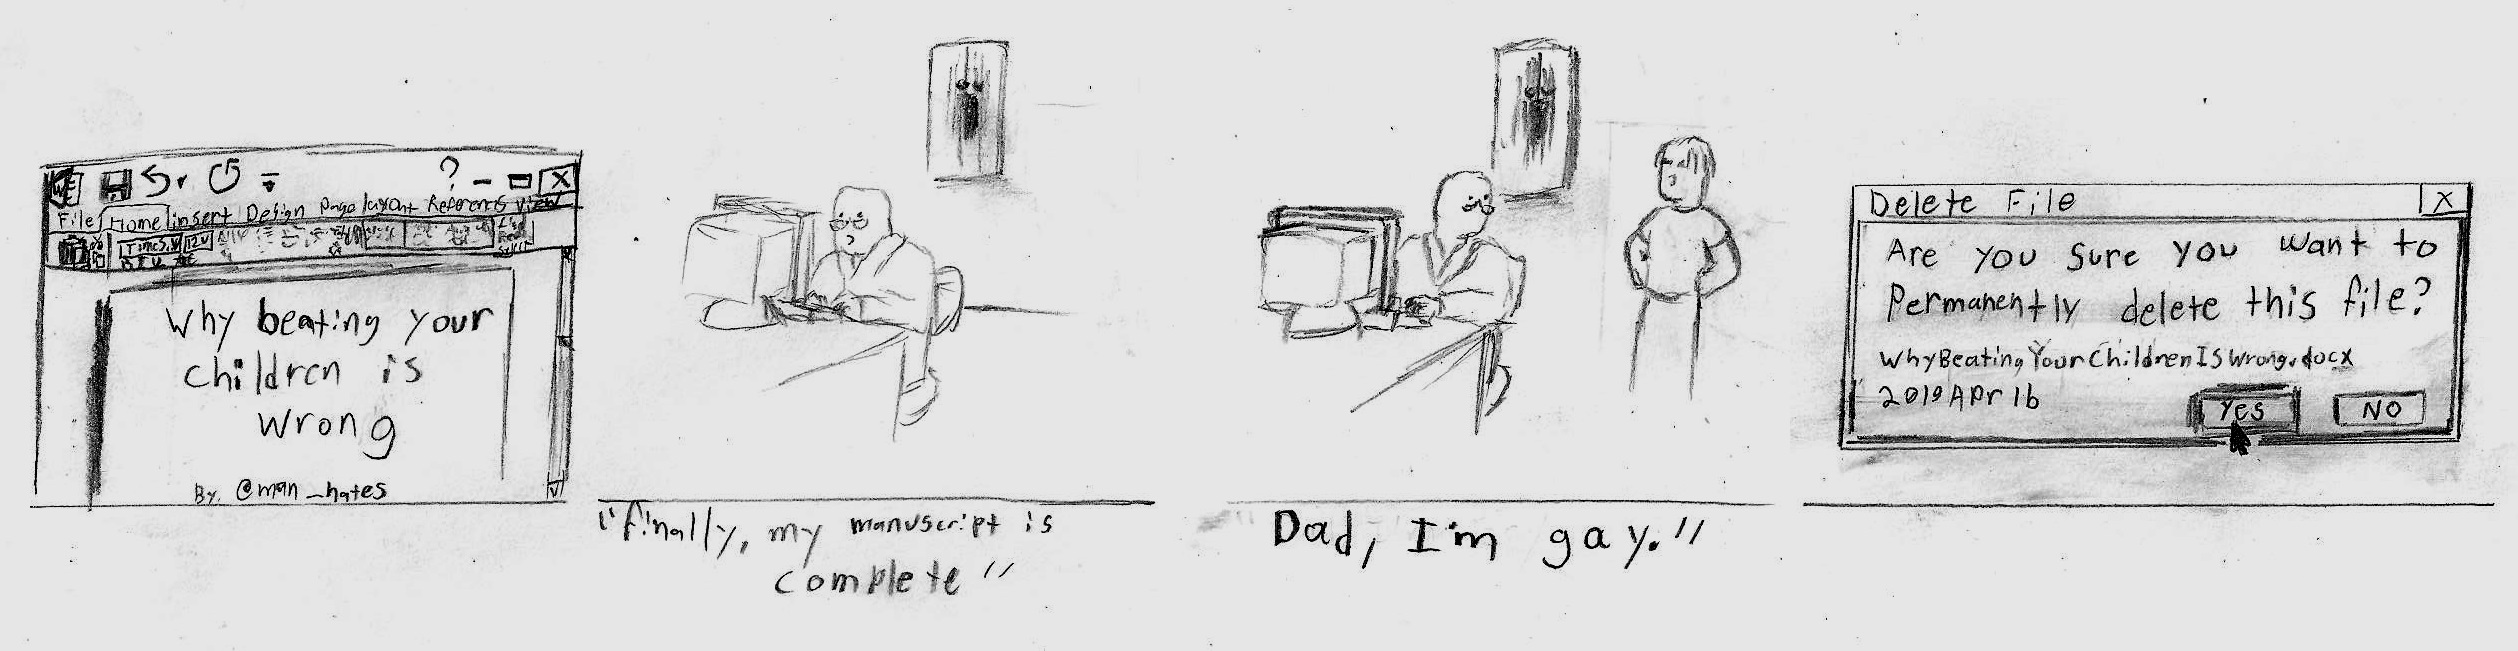 ?
X
File Home insert Design Page layout References View
Times
12
B I U
Why beating your
children is
wrong
By. @man_hates
"finally, my manuscript is
complete"
Dad, I'm gay."
Delete File
X
Are you sure you want to
Permanently delete this file?
WhyBeatingYourChildrenIsWrong.docx
2019 Apr 16
Yes
NO